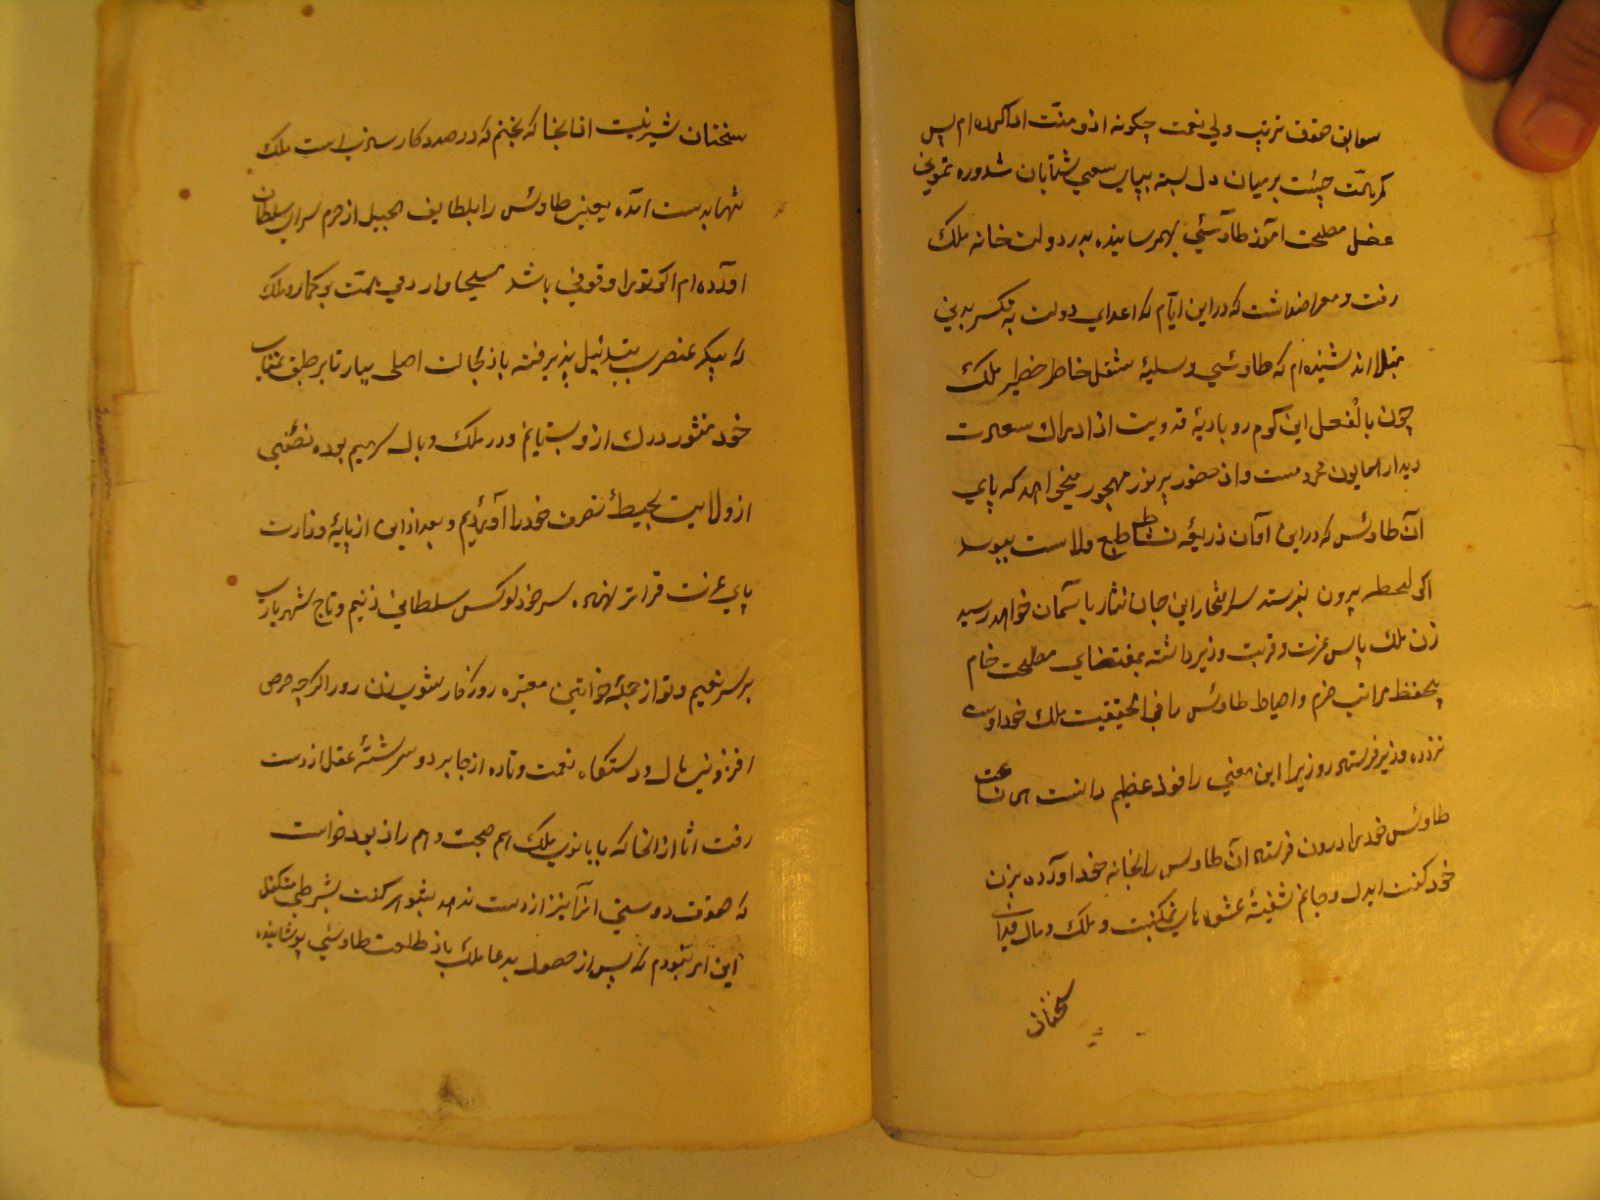 سوابق حقوق تربیت ولی نعمت چگونه از و منت ادا کرده ام پس
کمر همت چست بر میان دل بسته بپای سعی شتابان شد و ره
عضل مصلحت آموز طاوسی بهم رسانیده بدر دولت خانه ملک
رفت و معروضداشت که در این ایام که اعدای دولت به تکسر بدنی
مبتلا اند شنیده ام که طاوسی وسلیهٔ شغل خاطر خطیر ملک
چون بالفعل این گوم رو بادیهٔ فدویت از ادراک سعادت
دیدار همایون محرومست و از حضور پر نور مهجور میخواهد که پای
آن طاوس که در این آوان ذریعهٔ نشاط طبع والاست ببوسد
اگر لحظه بیرون بفرستد سر افتخار این جان نثار بآسمان خواهد رسید
زن ملک پاس عزت و قربت وزیر داشته بمقتضای مصلحت خام
بحفظ مراتب حزم و احتیاط طاوس را فی الحقیقت ملک خدا
نزد وزیر فرستاد و وزیر این معنی را فوز عظیم دانست همان ساعت
طاوس خود را درون فرستاد آن طاوس را بخانه خود آورده بزن
خود گفت ای دل و جانم شیفتهٔ عشوه های نمکینت و ملک و مال فدای
سخنان
سخنان شیرینت از آنجا که بختم که در صدد کارسازیست ملک
تنها بدست آمده یعنی طاوس را بلطایف الحیل از حرم سرای سلطان
آورده ام اگر ترا وقوفی باشد مسیحا وار دمی همت بر گمار و ملک
که پیکر عنصری تبدیل پذیرفته باز بحالت اصلی بیار تا بر طبق
خود منشور درک از و بستانم و در ملک و مال سهیم بوده نصفی
از ولایت بحیطهٔ تصرف خود در آوریم و بعد از این از پایهٔ وزارت
پای عزت فراتر نهاده سر خود کوس سلطانی زنیم و تاج شهریاری
بر سر نهیم و تو از جمله خواتین معتبره روزگار شوی زن رو اگر چه حرص
افزونی مال و دستگاه نعمت و تا ده از جا برد و سررشتهٔ عقل از دست
رفت اما از انجا که با بانوی ملک هم صحبت و هم راز بود خواست
که حقوق دوستی انرا نیز از دست ندهد بشوهر گفت بشرطی متکفل
این امر شوم که پس از حصول مدعا ملک باز خلعت طاوسی پوشانیده